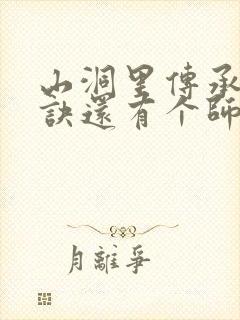 山洞里傳承
訣還有个師
月離爭